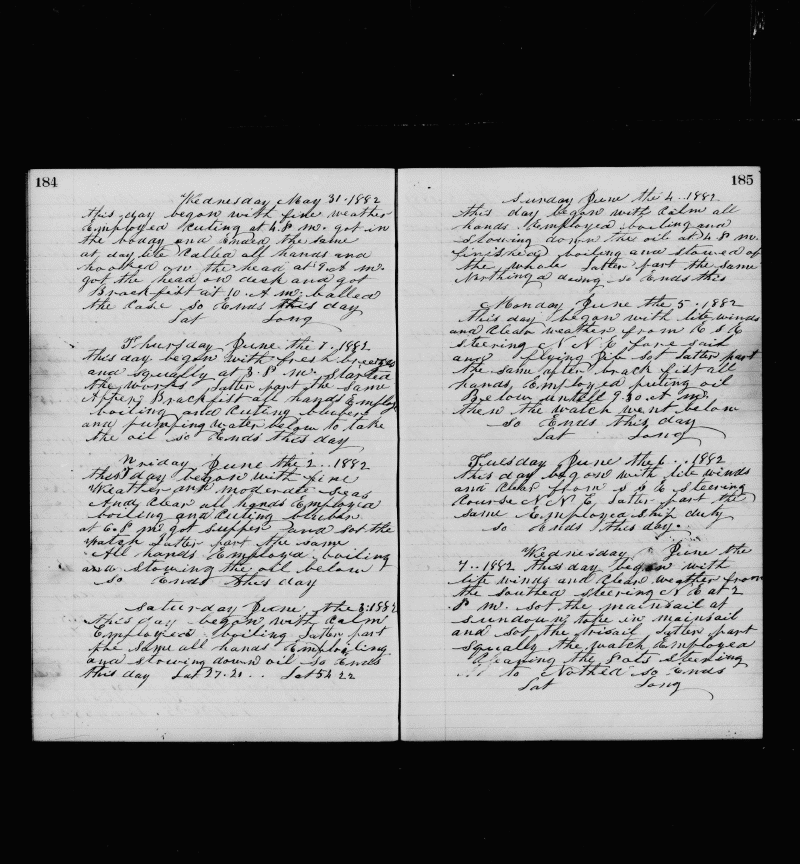 184
Wednesday May 31. 1882
this day began with fine weather
Employed Cuting at 4. P m. got in
the boddy and Ended the same
at day lite Called all hands and
hooked on the head at 9. A m.
got the head on deck and got
Brackfist at 10. A m. balled
the Case so Ends this day
Lat Long
Thursday June the 1. 1882
this day began with fresh breezes
and squally at 3. P. m. started
the works Latter part the same
After Brackfist all hands Employ
boiling and Cuting blubber
and pumping water below to take
the oil so Ends this day
Friday June the 2.. 1882
this day began with fine
Weather and moderate seas
And Clear all hands Employed
boiling and Cuting blubber
at 6. P m. got supper and sot the
watch Latter part the same
All hands Employed boiling
and stowing the oil below
so Ends this day
Saturday June the 3: 1882
this day began with Calm
Employed boiling Latter part
the same all hands Employed
and stowing down oil so Ends
this day Lat 37.21.. Lat 54 22
185
Sunday June the 4.. 1882
this day began with Calm all
hands Employed boiling and
stowing down the oil at 4. P m.
finished boiling and stowed of
the whole Latter part the same
Northing a doing so Ends this
Monday June the 5. 1882
this day began with lite winds
and Clear weather from E S E
steering N N E fore said
and flying Jib sot Latter part
the same after brackfist all
hands Employed puting oil
Below untill 9.30 A m.
then the watch went below
so Ends this day
Lat Long
Tuesday June the 6.. 1882
this day began with lite winds
and Clear from S S E steering
Course N N E Latter part the
same Employed ship duty
so Ends this day.
Wednesday June the
7.. 1882 this day began with
lite winds and Clear weather from
the southed steering N E at 2
P m. sot the mainsail at
sundown toke in mainsail
and sot the trisail Latter part
squally the watch Employed
Cleaning the steering
to Nothed so Ends
Lat Long